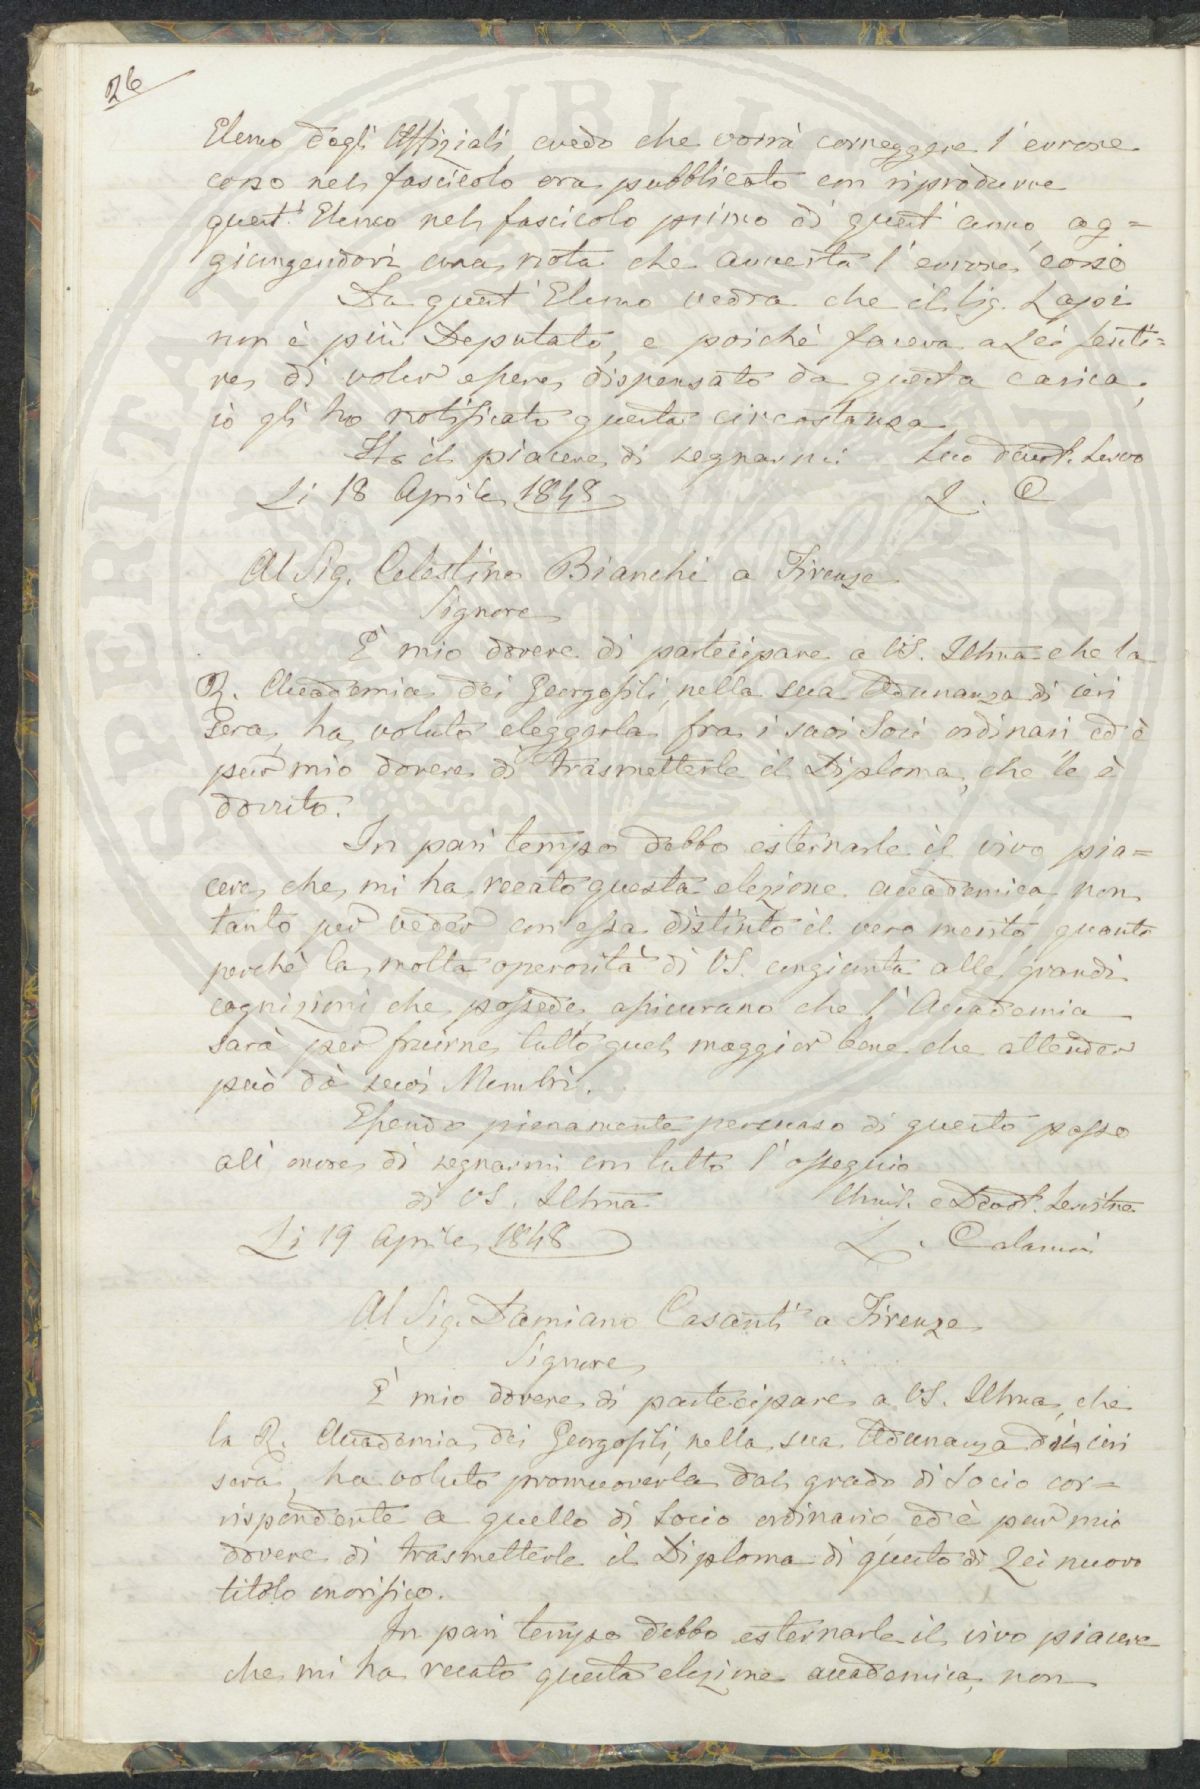 26
Elenco degli Uffiziali credo che vorrà correggere l'errore
corso nel fascicolo ora pubblicato con riprodurre
quest'Elenco nel fascicolo primo di quest'anno, ag=
giungendovi una nota che avverta l'errore corso
Da quest'Elenco vedrà che il Sig. Lapi
non è più Deputato, e poichè faceva a Lei senti=
re di voler essere dispensato da questa carica,
io gli ho notificato questa circostanza
Ho il piacere di segnarmi Suo devot. Servo
Li 18 Aprile 1848 L. C
Al Sig. Celestino Bianchi a Firenze
Signore
È mio dovere di partecipare a VS. Illma che la
R. Accademia dei Georgofili, nella sua Adunanza di ieri
sera, ha voluto eleggerla fra i suoi Soci ordinari ed è
pur mio dovere di trasmetterle il Diploma, che le è
dovuto.
In pari tempo debbo esternarle il vivo pia=
cere che mi ha recato questa elezione accademica, non
tanto per veder con essa distinto il vero merito, quanto
perchè la molta operosità di VS. congiunta alle grandi
cognizioni che possede, assicurano che l'Accademia
sarà per fruirne tutto quel maggior bene che attender
può da' suoi Membri.
Essendo pienamente persuaso di questo passo
all'onore di segnarmi con tutto l'ossequio
di VS. Illma Umil. e Devot. Servitre
Li 19 Aprile 1848 L. Calamai
Al Sig. Damiano Casanti a Firenze
Signore
È mio dovere di partecipare a VS. Illma, che
la R. Accademia dei Georgofili, nella sua Adunanza di ieri
sera, ha voluto promuoverla dal grado di Socio cor=
rispondente a quello di Socio ordinario, ed è pur mio
dovere di trasmetterle il Diploma di questo di Lei nuovo
titolo onorifico.
In pari tempo debbo esternarle il vivo piacere
che mi ha recato questa elezione accademica, non